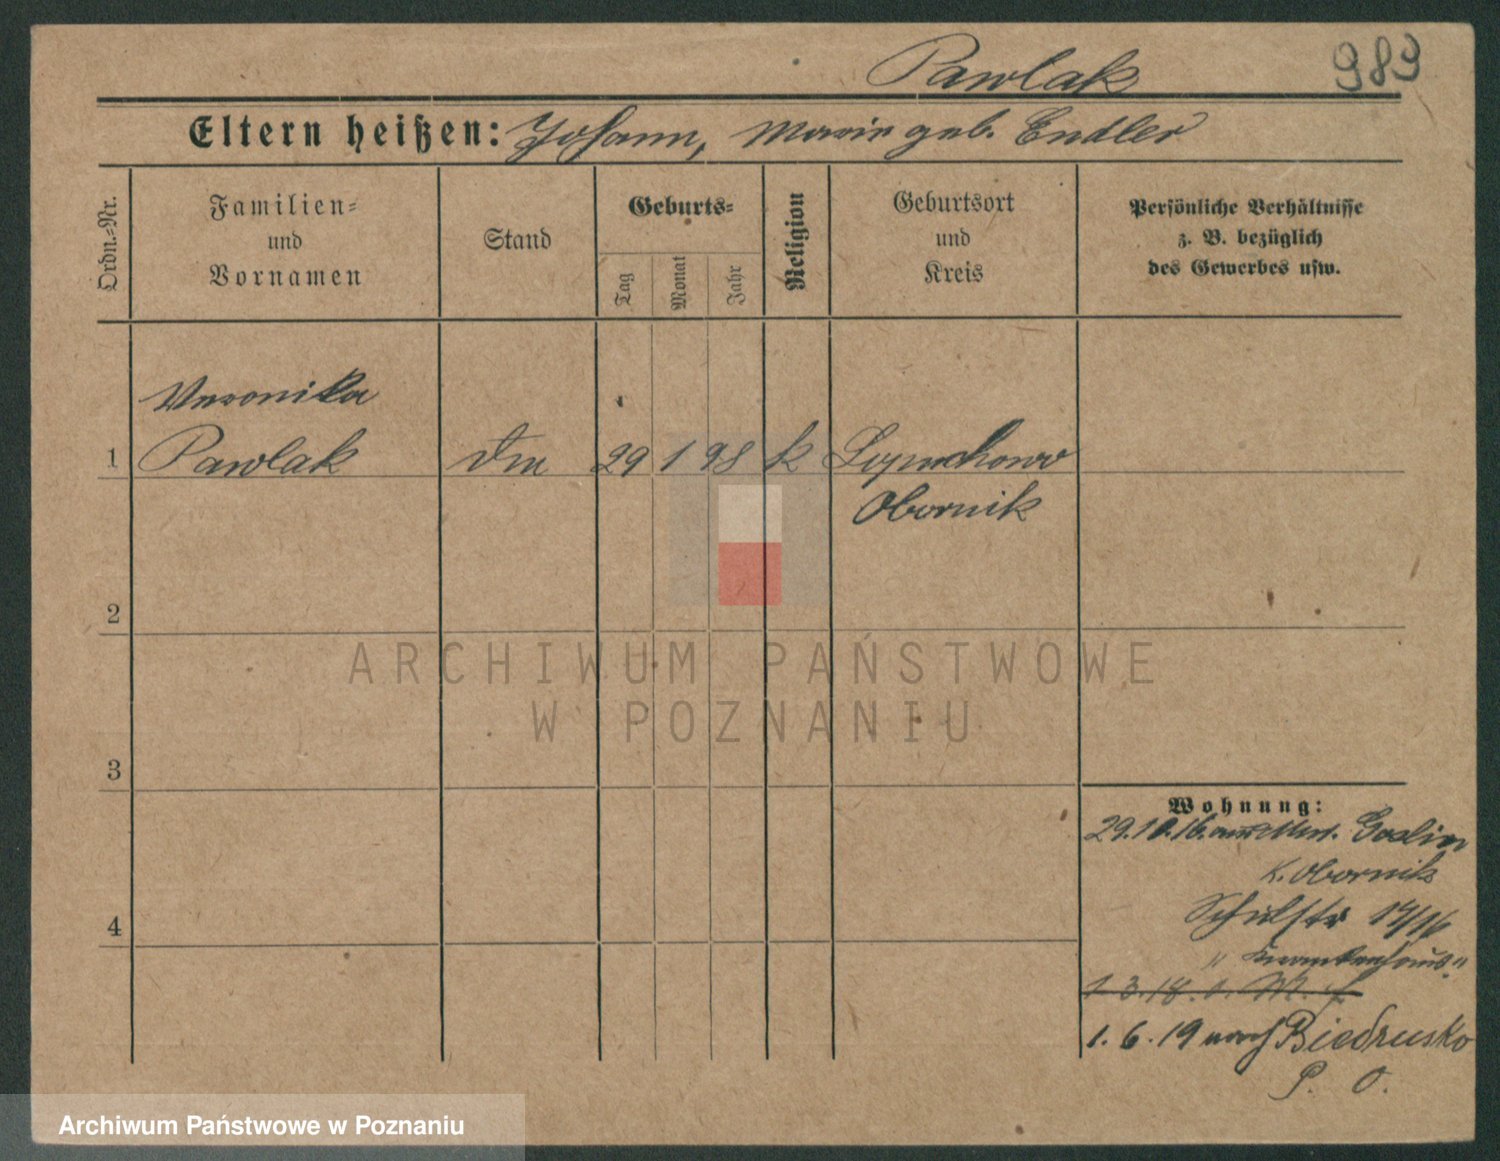 Pawlak 989
Eltern heißen: Johann, Marie geb. Endler
Ordn.-Nr.
Familien-
und
Vornamen
Stand
Geburts-
Tag
Monat
Jahr
Religion
Geburtsort
und
Kreis
Persönliche Verhältnisse
z. B. bezüglich
des Gewerbes usw.
Veronika
1 Pawlak 29 1 98 k
Obornik
2
ARCHIWUM PAŃSTWOWE
W POZNANIU
3
Wohnung:
29.10.16. aus Goslin
K. Obornik
4
Schulstr 14/16
"Krankenhaus"
1.3.18.
1.6.19 nach Biedrusko
P. O.
Archiwum Państwowe w Poznaniu